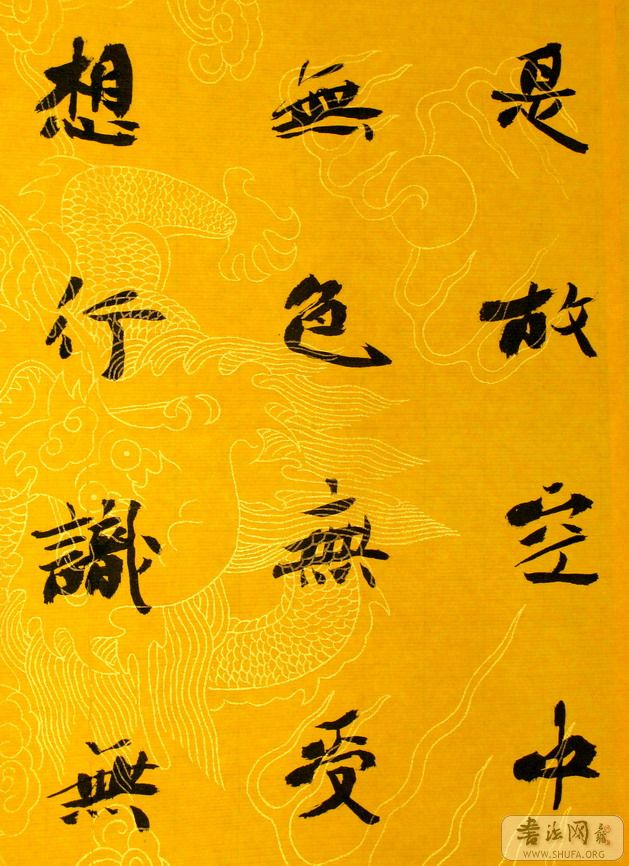 是故空中
無色無受
想行識無
書法网
WWW.SHUFA.ORG